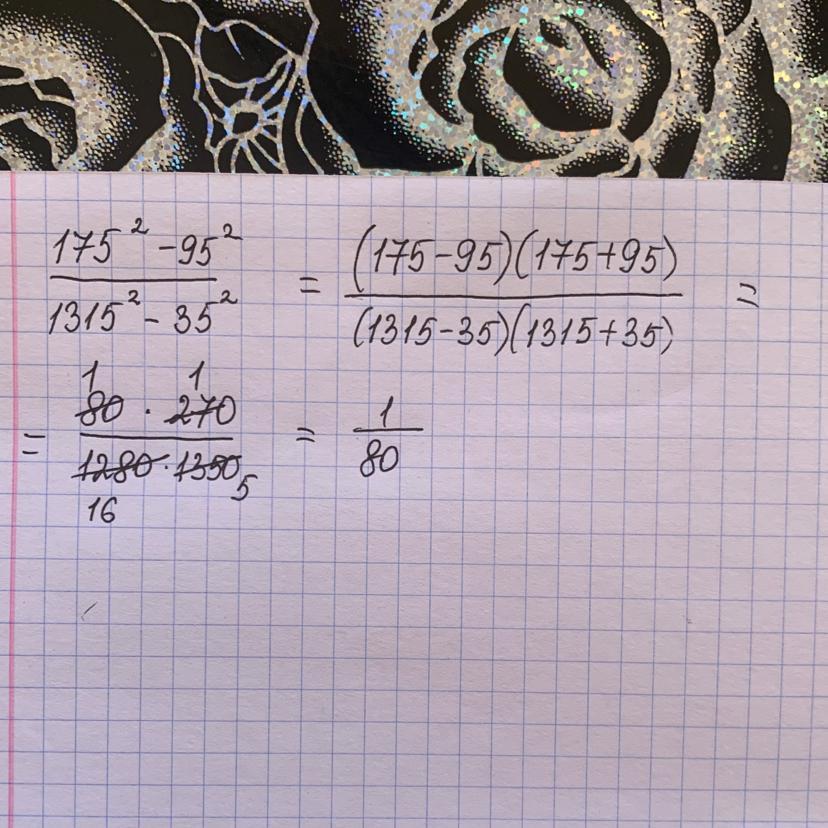 175² - 95² / 1315² - 35² = (175-95)(175+95) / (1315-35)(1315+35) =
= 1 1 80 · 270 / 1280 · 1350 16 5 = 1 / 80